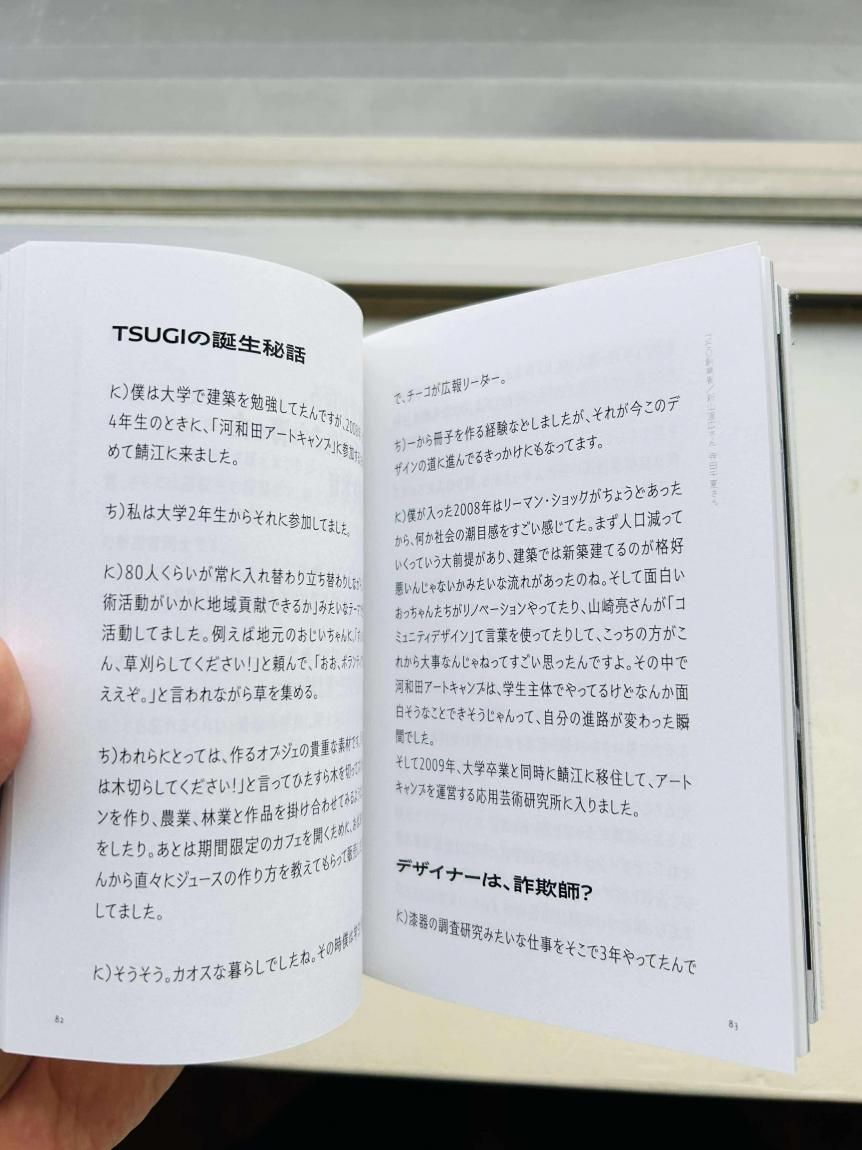 TSUGIの誕生秘話
K)僕は大学で建築を勉強してたんですが、2008年、
4年生のときに、「河和田アートキャンプ」に参加
めて鯖江に来ました。
ち)私は大学2年生からそれに参加してました。
K)80人くらいが常に入れ替わり立ち替わりしながら
術活動がいかに地域貢献できるか」みたいなテーマ
活動してました。例えば地元のおじいちゃんに、
ん、草刈らしてください!」と頼んで、「おお、ボランティ
ええぞ。」と言われながら草を集める。
ち)われらにとっては、作るオブジェの貴重な素材です。
は木切らしてください!」と言ってひたすら木を切って
ンを作り、農業、林業と作品を掛け合わせてみるよう
をしたり。あとは期間限定のカフェを開くために、
んから直々にジュースの作り方を教えてもらって販売
してました。
K)そうそう。カオスな暮らしでしたね。その時僕は
82
で、チーコが広報リーダー。
ち)一から冊子を作る経験などしましたが、それが今このデ
ザインの道に進んでるきっかけにもなってます。
K)僕が入った2008年はリーマン・ショックがちょうどあった
から、何か社会の潮目感をすごい感じてた。まず人口減って
いくっていう大前提があり、建築では新築建てるのが格好
悪いんじゃないかみたいな流れがあったのね。そして面白い
おっちゃんたちがリノベーションやってたり、山崎亮さんが「コ
ミュニティデザイン」て言葉を使ってたりして、こっちの方がこ
れから大事なんじゃねってすごい思ったんですよ。その中で
河和田アートキャンプは、学生主体でやってるけどなんか面
白そうなことできそうじゃんって、自分の進路が変わった瞬
間でした。
そして2009年、大学卒業と同時に鯖江に移住して、アート
キャンプを運営する応用芸術研究所に入りました。
デザイナーは、詐欺師?
K)漆器の調査研究みたいな仕事をそこで3年やってたんで
83